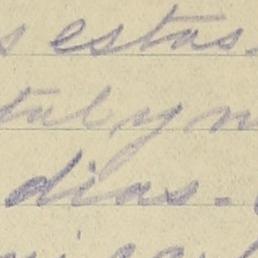 s estas
tal y n
dias.-